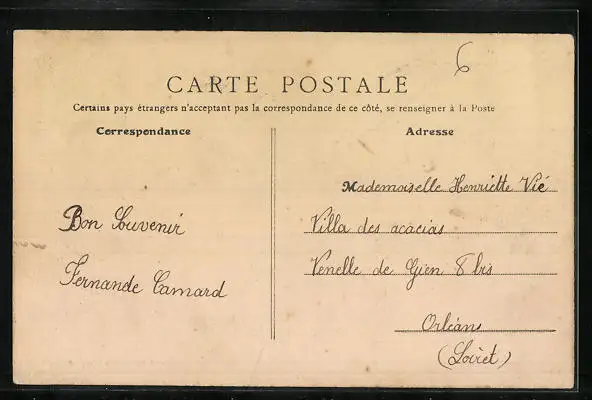 6
CARTE POSTALE
Certains pays étrangers n'acceptant pas la correspondance de ce côté, se renseigner à la Poste
Correspondance
Adresse
Bon Souvenir
Fernande Camard
Mademoiselle Henriette Vié
Villa des acacias
Venelle de Gien 8 bis
Orléans
(Loiret)